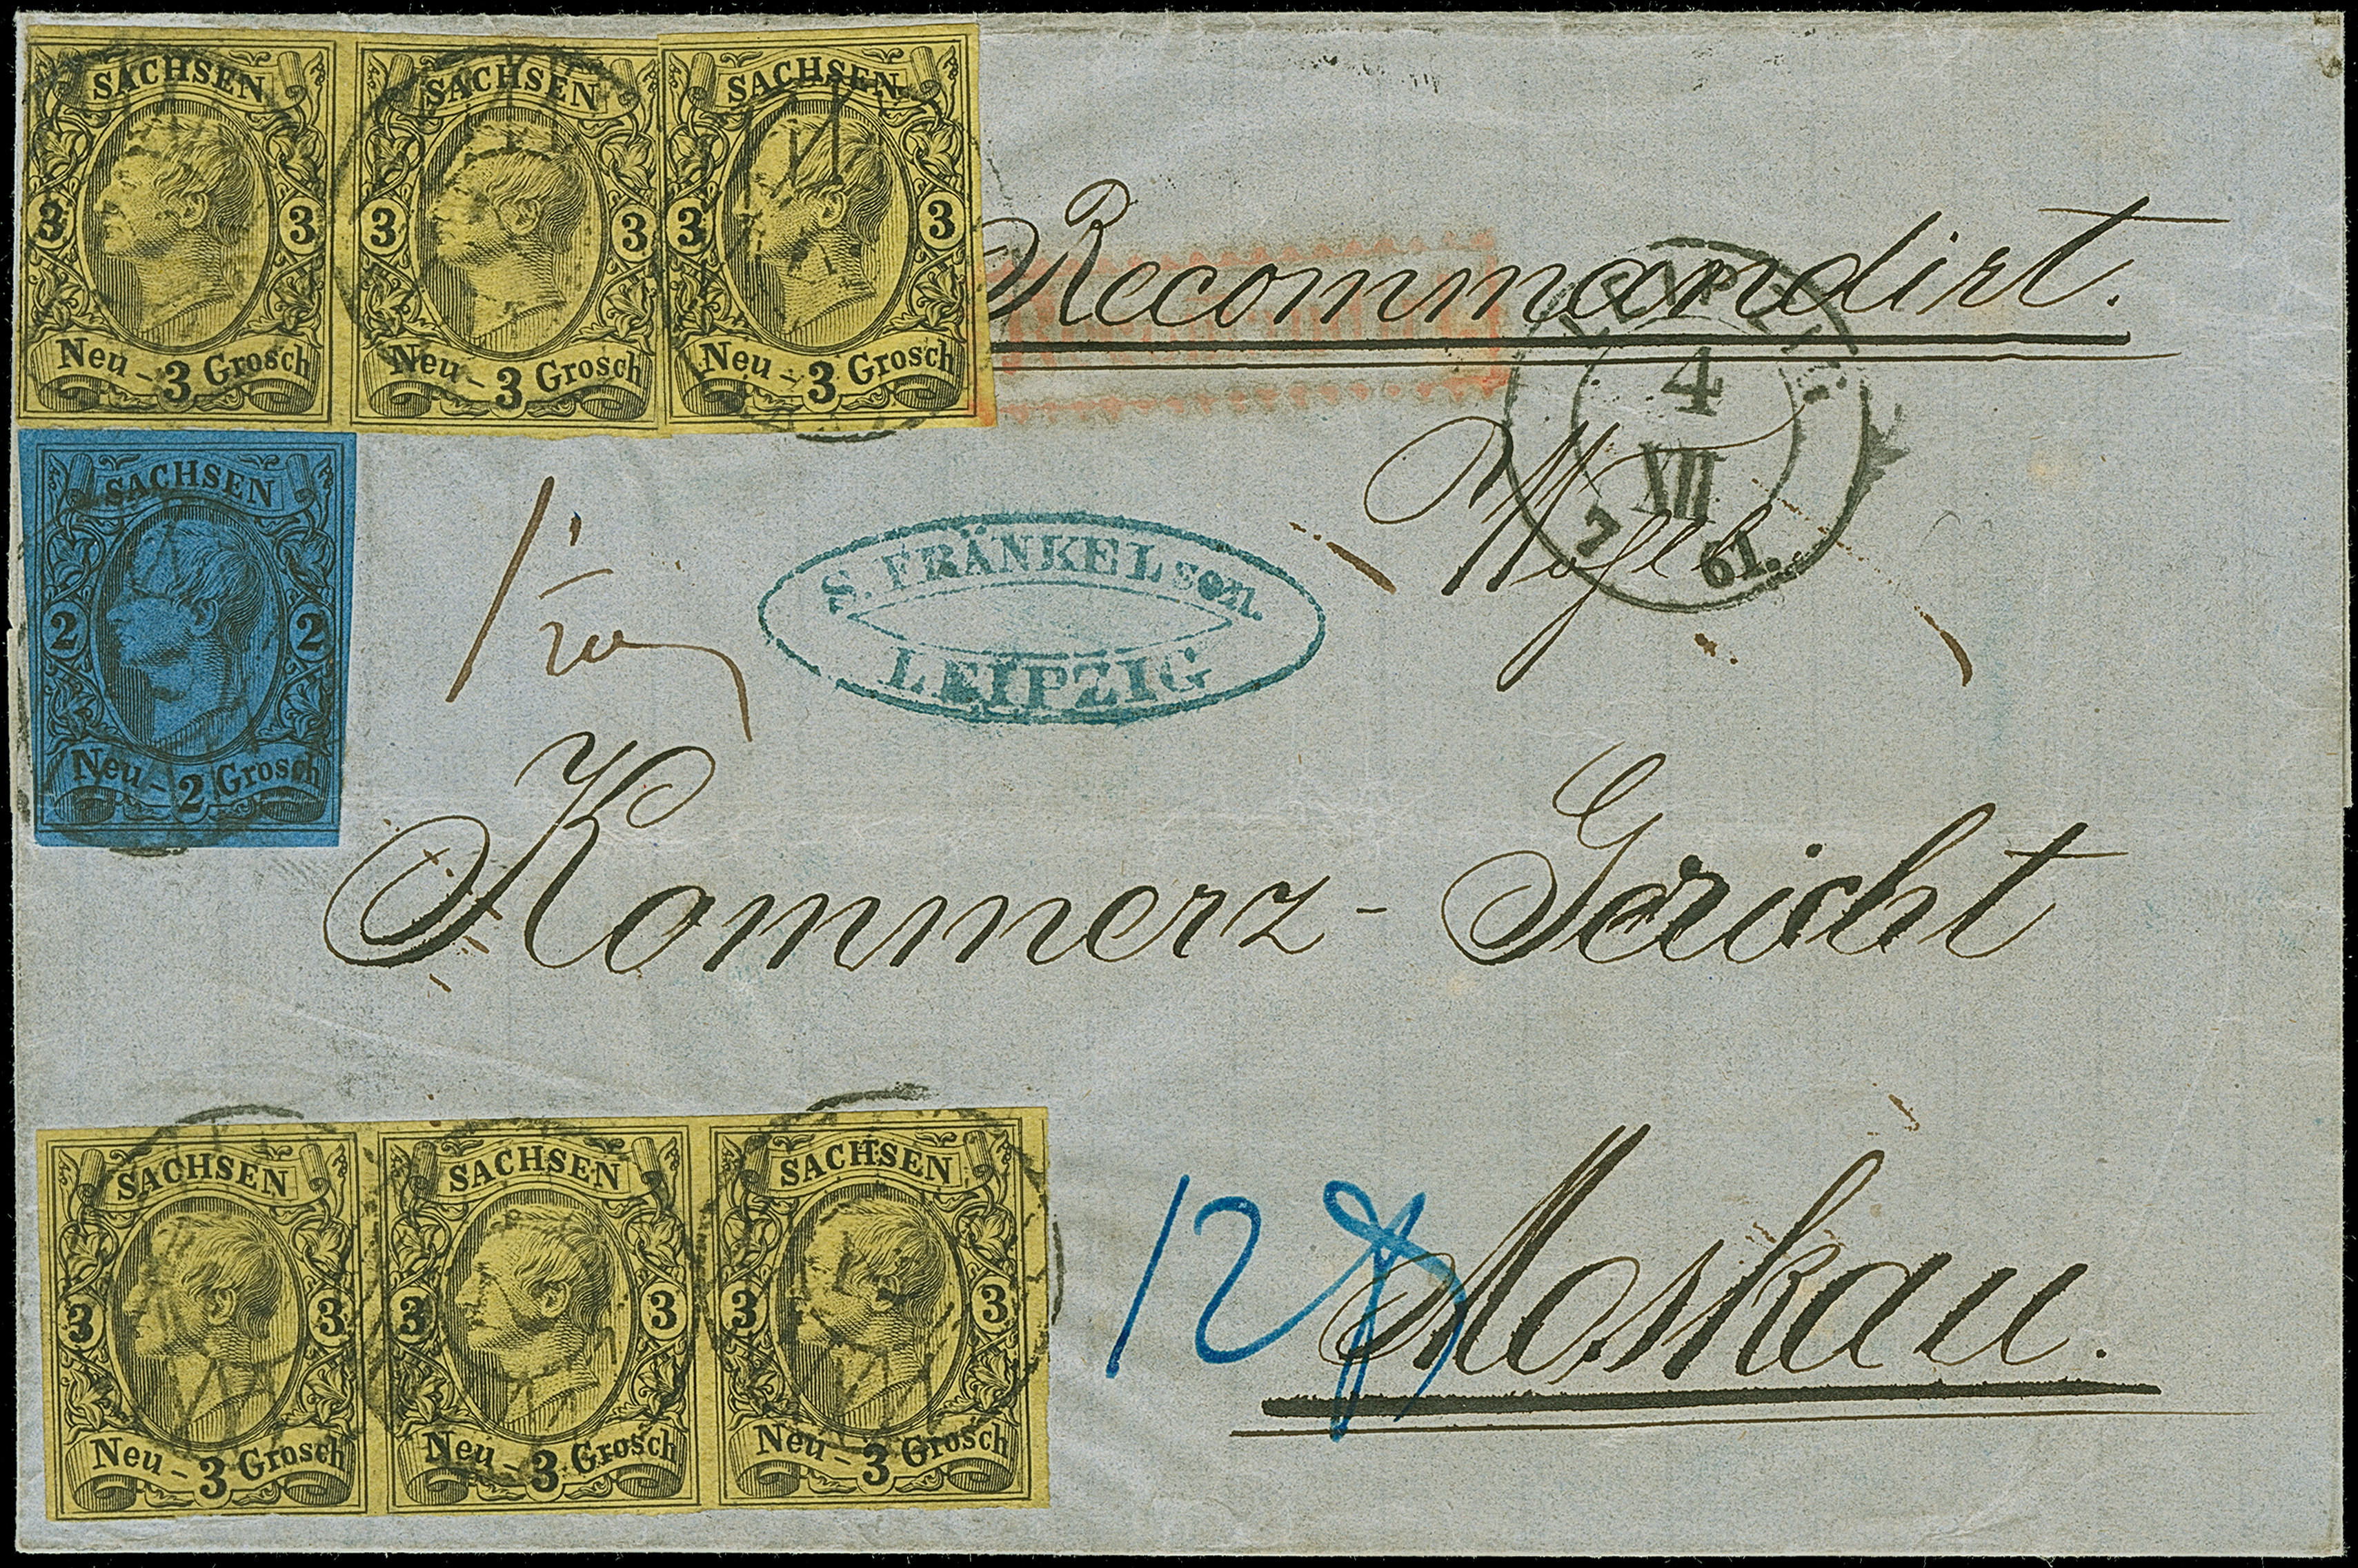 SACHSEN
3 3
Neu-3 Grosch
SACHSEN
3 3
Neu-3 Grosch
SACHSEN
3 3
Neu-3 Grosch
Recommandirt.
LEIPZIG
4
XII
61.
SACHSEN
2 2
Neu-2 Grosch
S. FRÄNKEL SOHN.
LEIPZIG
Kommerz-Gericht
Moskau.
12
SACHSEN
3 3
Neu-3 Grosch
SACHSEN
3 3
Neu-3 Grosch
SACHSEN
3 3
Neu-3 Grosch